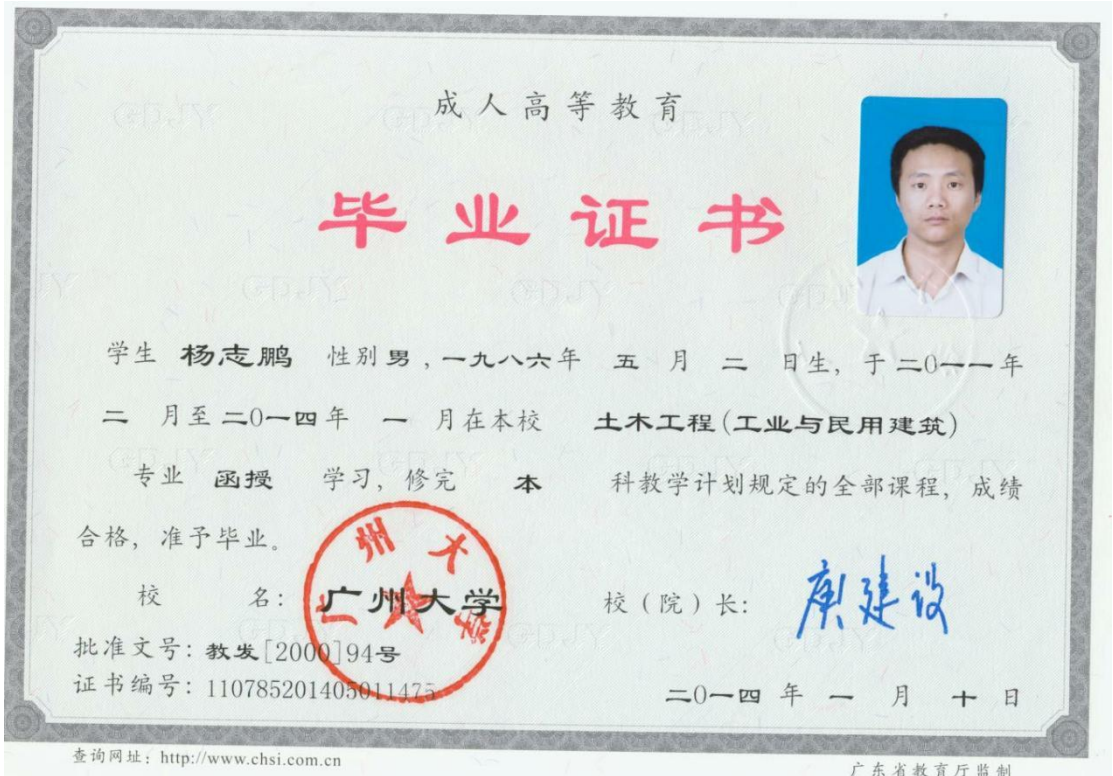 成人高等教育
毕业证书
学生 杨志鹏 性别男，一九八六年 五 月 二 日生，于二0一一年
二 月至二0一四年 一 月在本校 土木工程(工业与民用建筑)
专业 函授 学习，修完 本 科教学计划规定的全部课程，成绩
合格，准予毕业。
校 名：广州大学 校（院）长：庾建设
广州大学
批准文号：教发[2000]94号
证书编号：110785201405011475
二0一四 年 一 月 十 日
查询网址：http://www.chsi.com.cn
广东省教育厅监制
GDJY